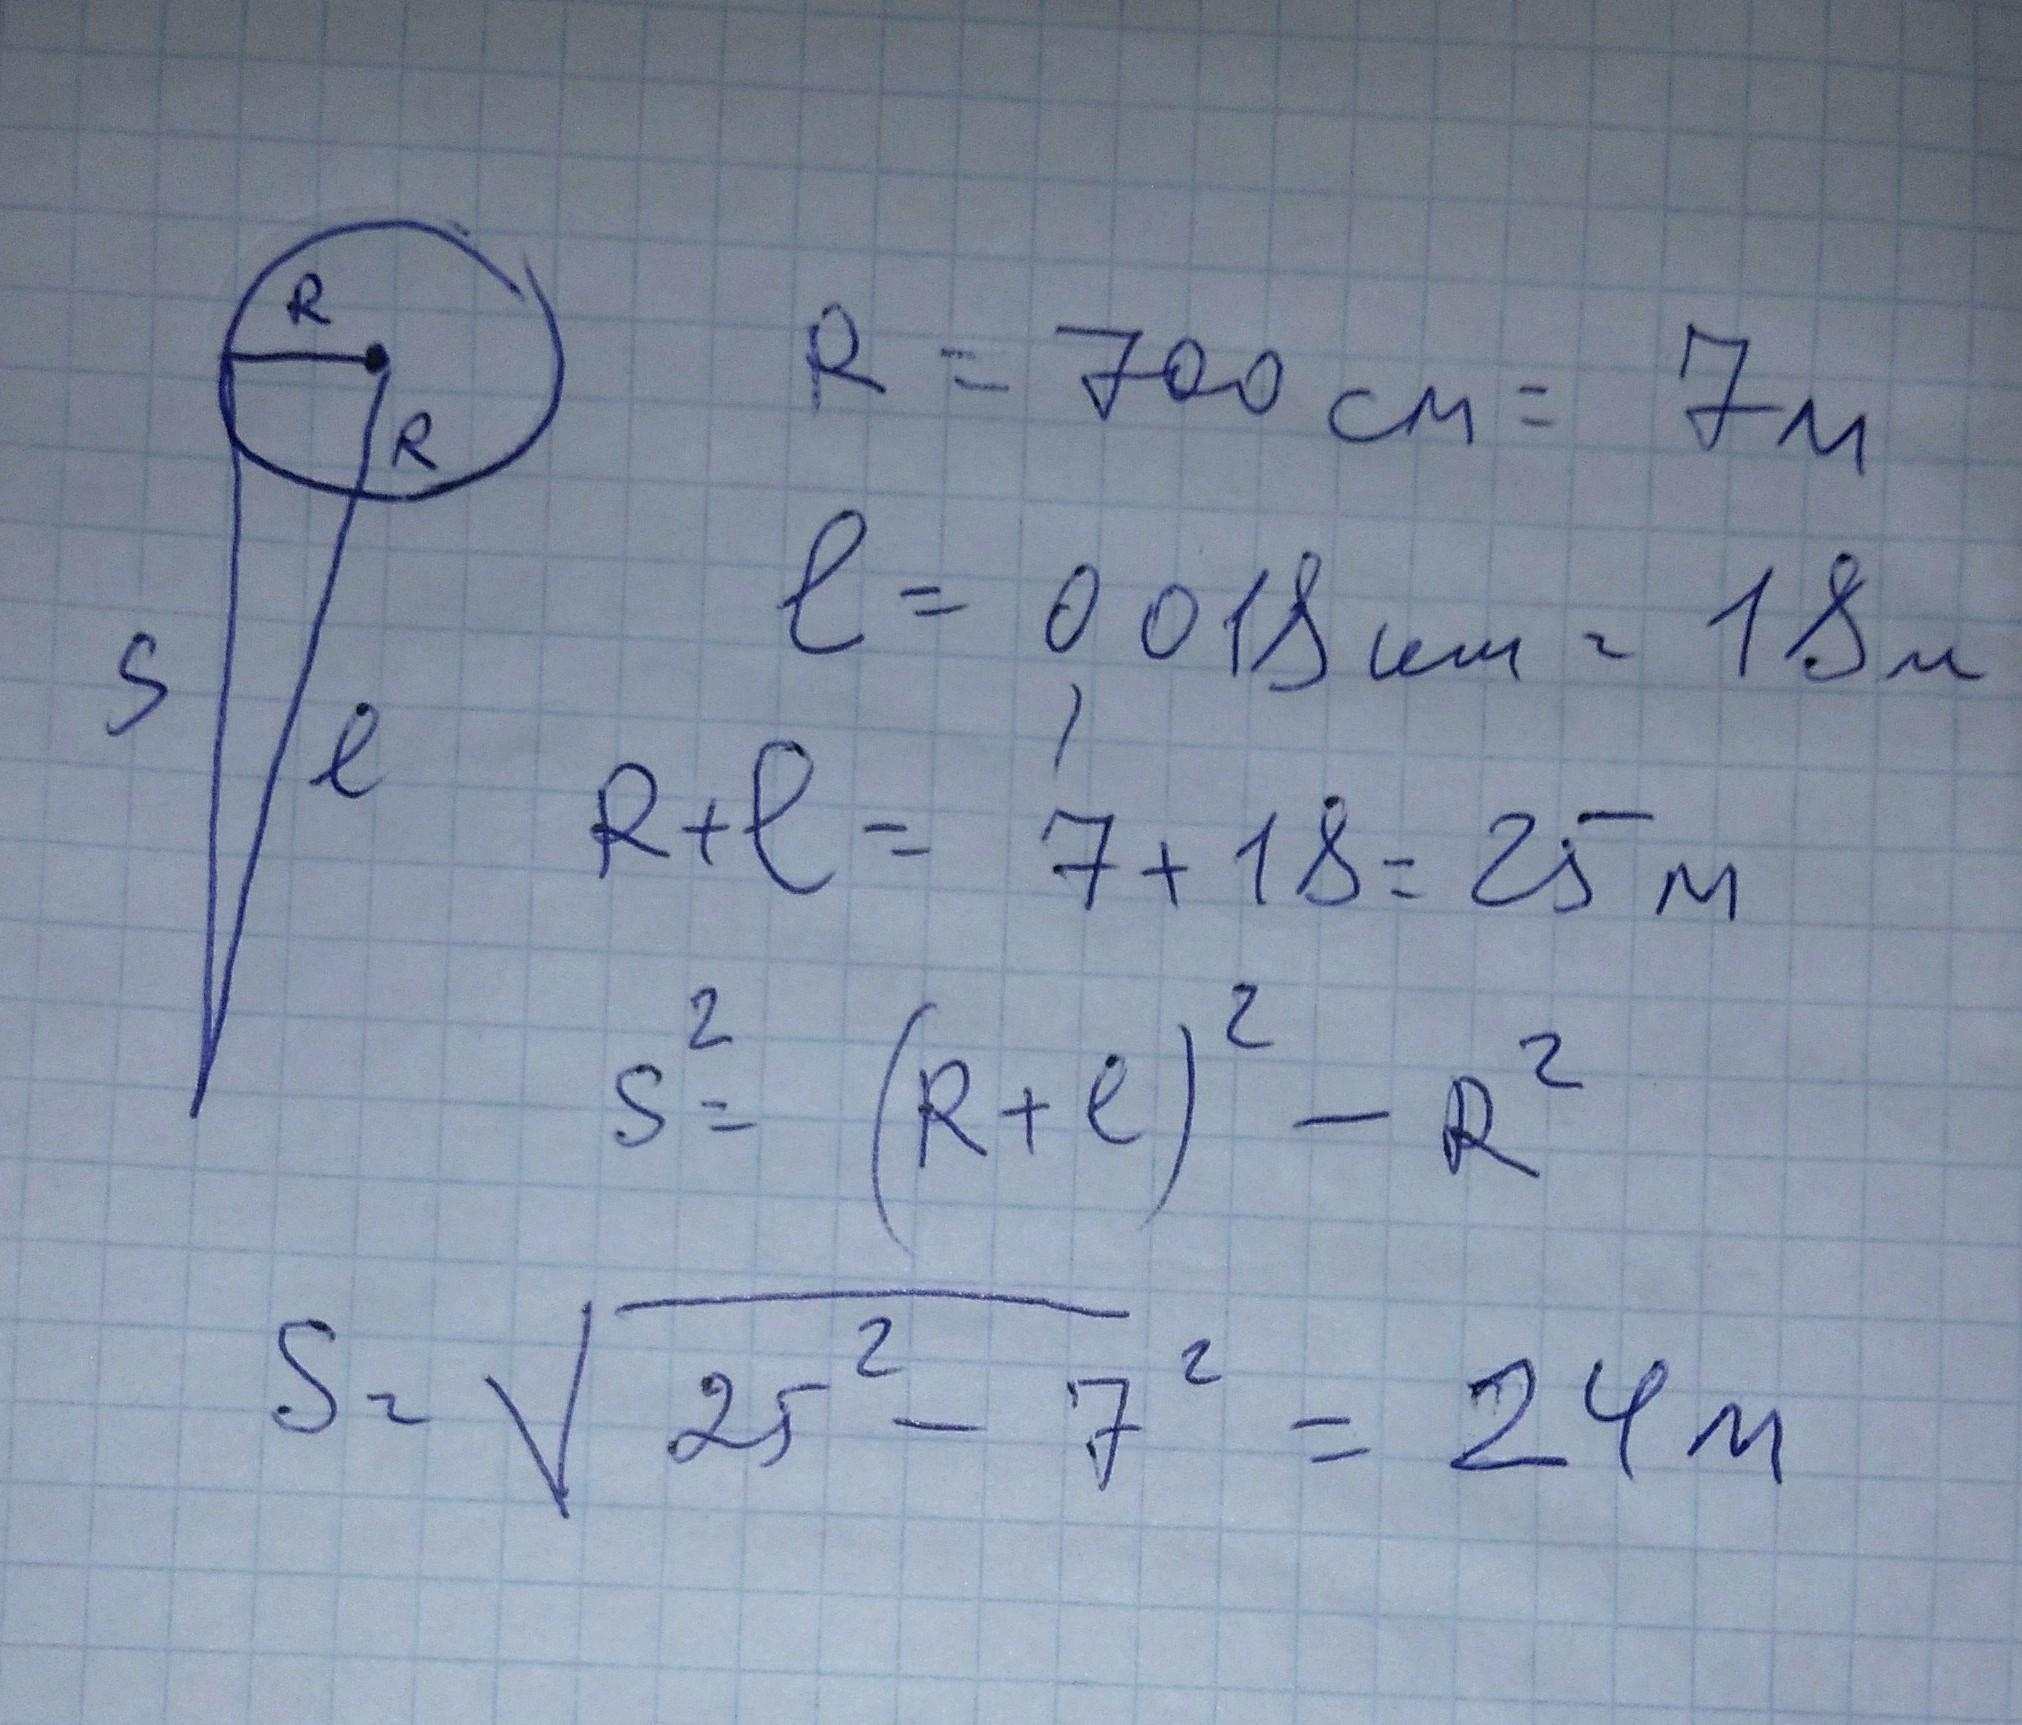 R
R
S
l
R = 700 см = 7м
l = 0,018 км = 18м
R+l = 7+18=25м
S² = (R+l)² − R²
S = √25² − 7² = 24м